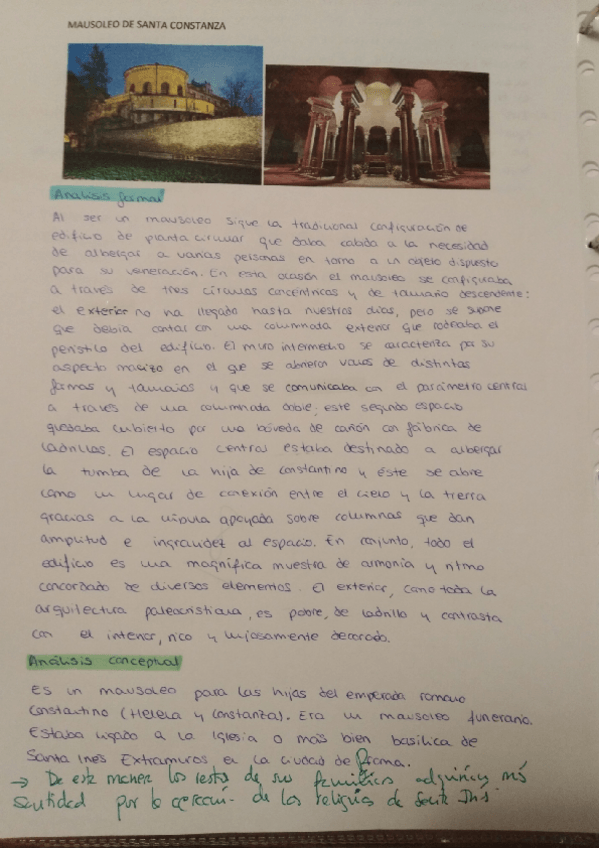 MAUSOLEO DE SANTA CONSTANZA
Análisis formal
Al ser un mausoleo sigue la tradicional configuración de
edificio de planta circular que daba cabida a la necesidad
de albergar a varias personas en torno a un objeto dispuesto
para su veneración. En esta ocasión el mausoleo se configuraba
a través de tres círculos concéntricos y de tamaño descendente:
el exterior no ha llegado hasta nuestros días, pero se supone
que debía contar con una columnada exterior que rodeaba el
peristilo del edificio. El muro intermedio se caracteriza por su
aspecto macizo en el que se abrieron vanos de distintas
formas y tamaños y que se comunicaba con el parámetro central
a través de una columnada doble; este segundo espacio
quedaba cubierto por una bóveda de cañón con fábrica de
ladrillos. El espacio central estaba destinado a albergar
la tumba de la hija de Constantino y éste se abre
como un lugar de conexión entre el cielo y la tierra
gracias a la cúpula apoyada sobre columnas que dan
amplitud e ingravidez al espacio. En conjunto, todo el
edificio es una magnífica muestra de armonía y ritmo
concordado de diversos elementos. El exterior, como toda la
arquitectura paleocristiana, es pobre, de ladrillo y contrasta
con el interior, rico y lujosamente decorado.
Análisis conceptual
Es un mausoleo para las hijas del emperado romano
Constantino (Helena y Constanza). Era un mausoleo funerario.
Estaba ligado a la Iglesia o más bien basílica de
Santa Inés Extramuros en la ciudad de Roma.
→ De esta manera los restos de sus familias más
santidad por la de las reliquias de Santa Inés